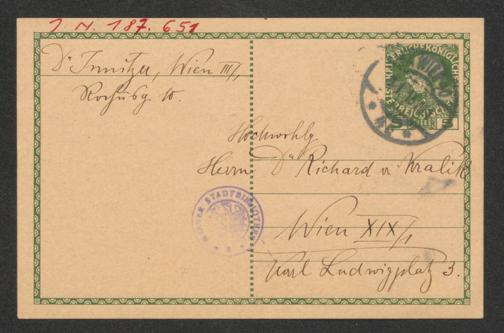 J. N. 187.651
Dr Innitzer, Wien III/1
Rochusg. 10.
Hochwohlg.
Herrn Dr Richard v Kralik
Wien XIX/1
Karl Ludwigplatz 3.
WIENER STADTBIBLIOTHEK
WIEN
5